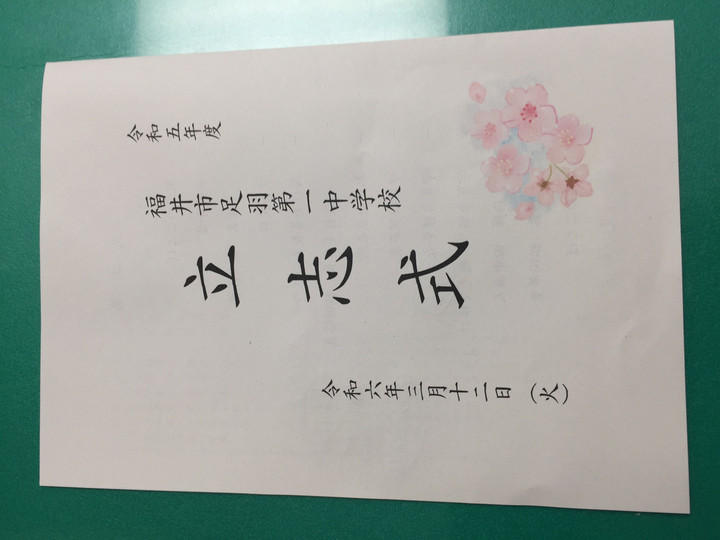 令和五年度
福井市足羽第一中学校
立志式
令和六年三月十二日（火）